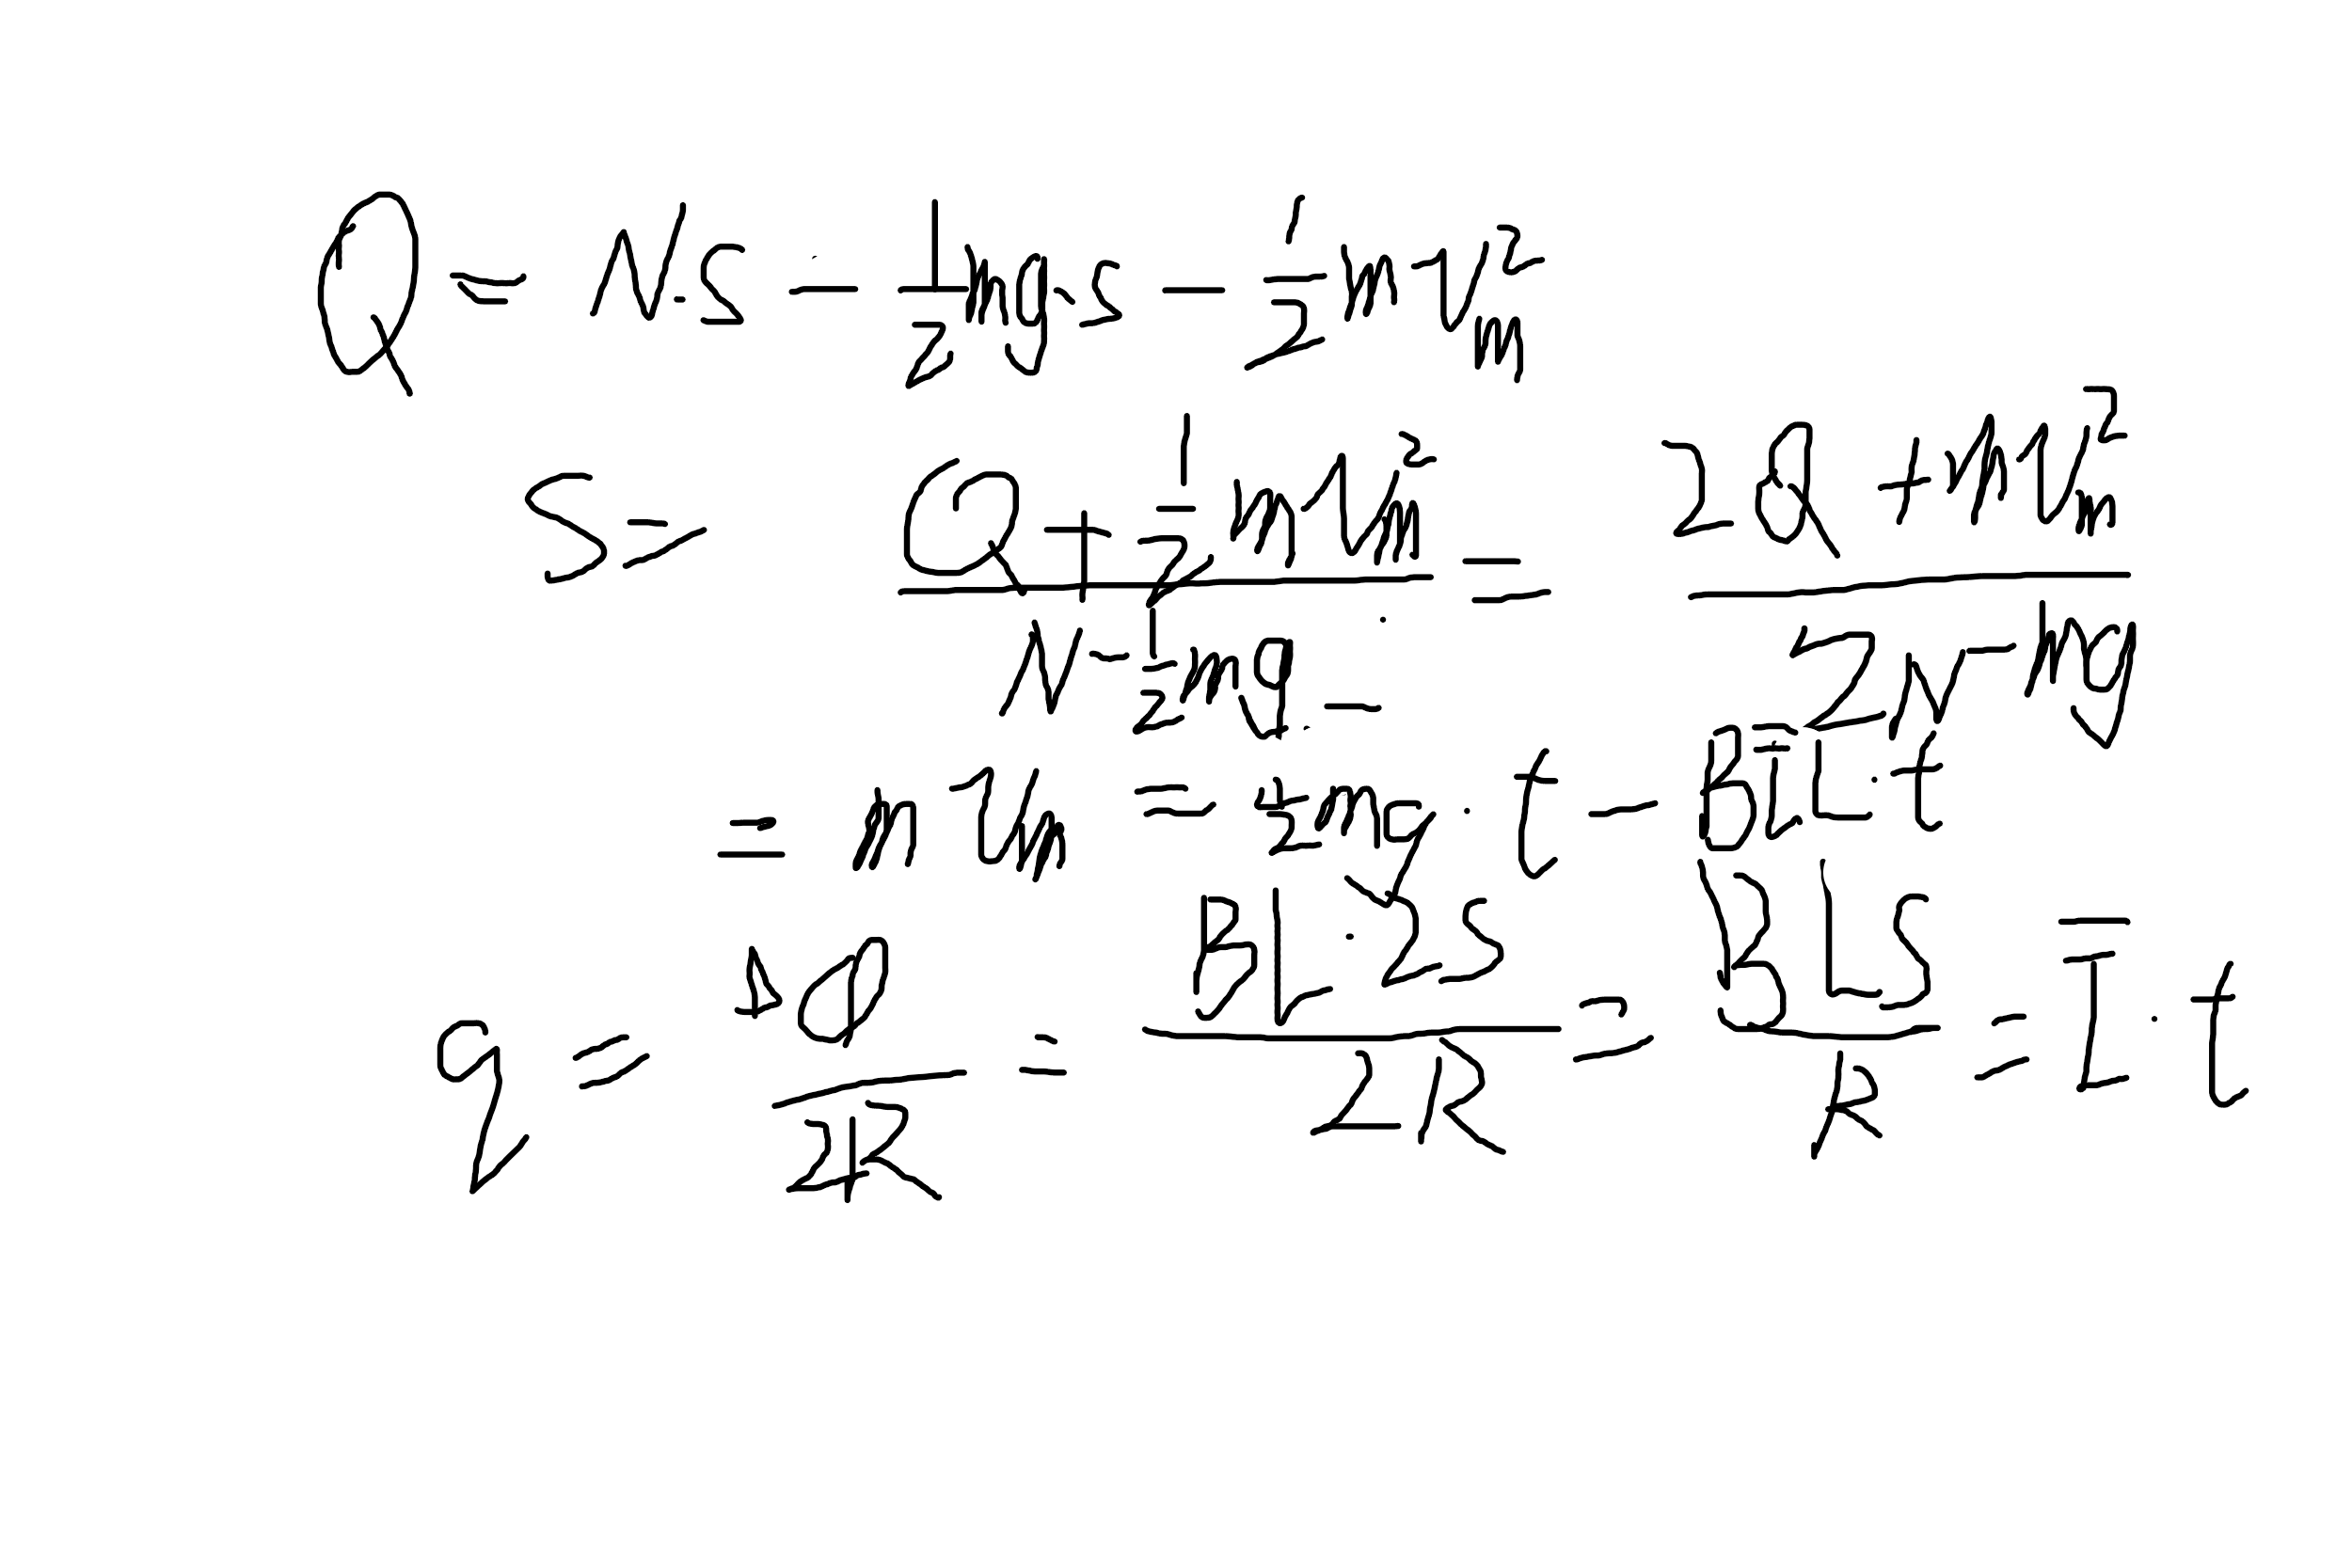 Q = Ns - 1/2 mgs - 1/2 m v_m^2
s = (Q + 1/2 m v_m^2) / (N - 1/2 mg) = (2Q + m v_m^2) / (2N - mg)
= m v_m = 1/2 mg · t - B I L · t
q = ΔΦ / 2R = BL·2s / 2R = BLs / R = I · t